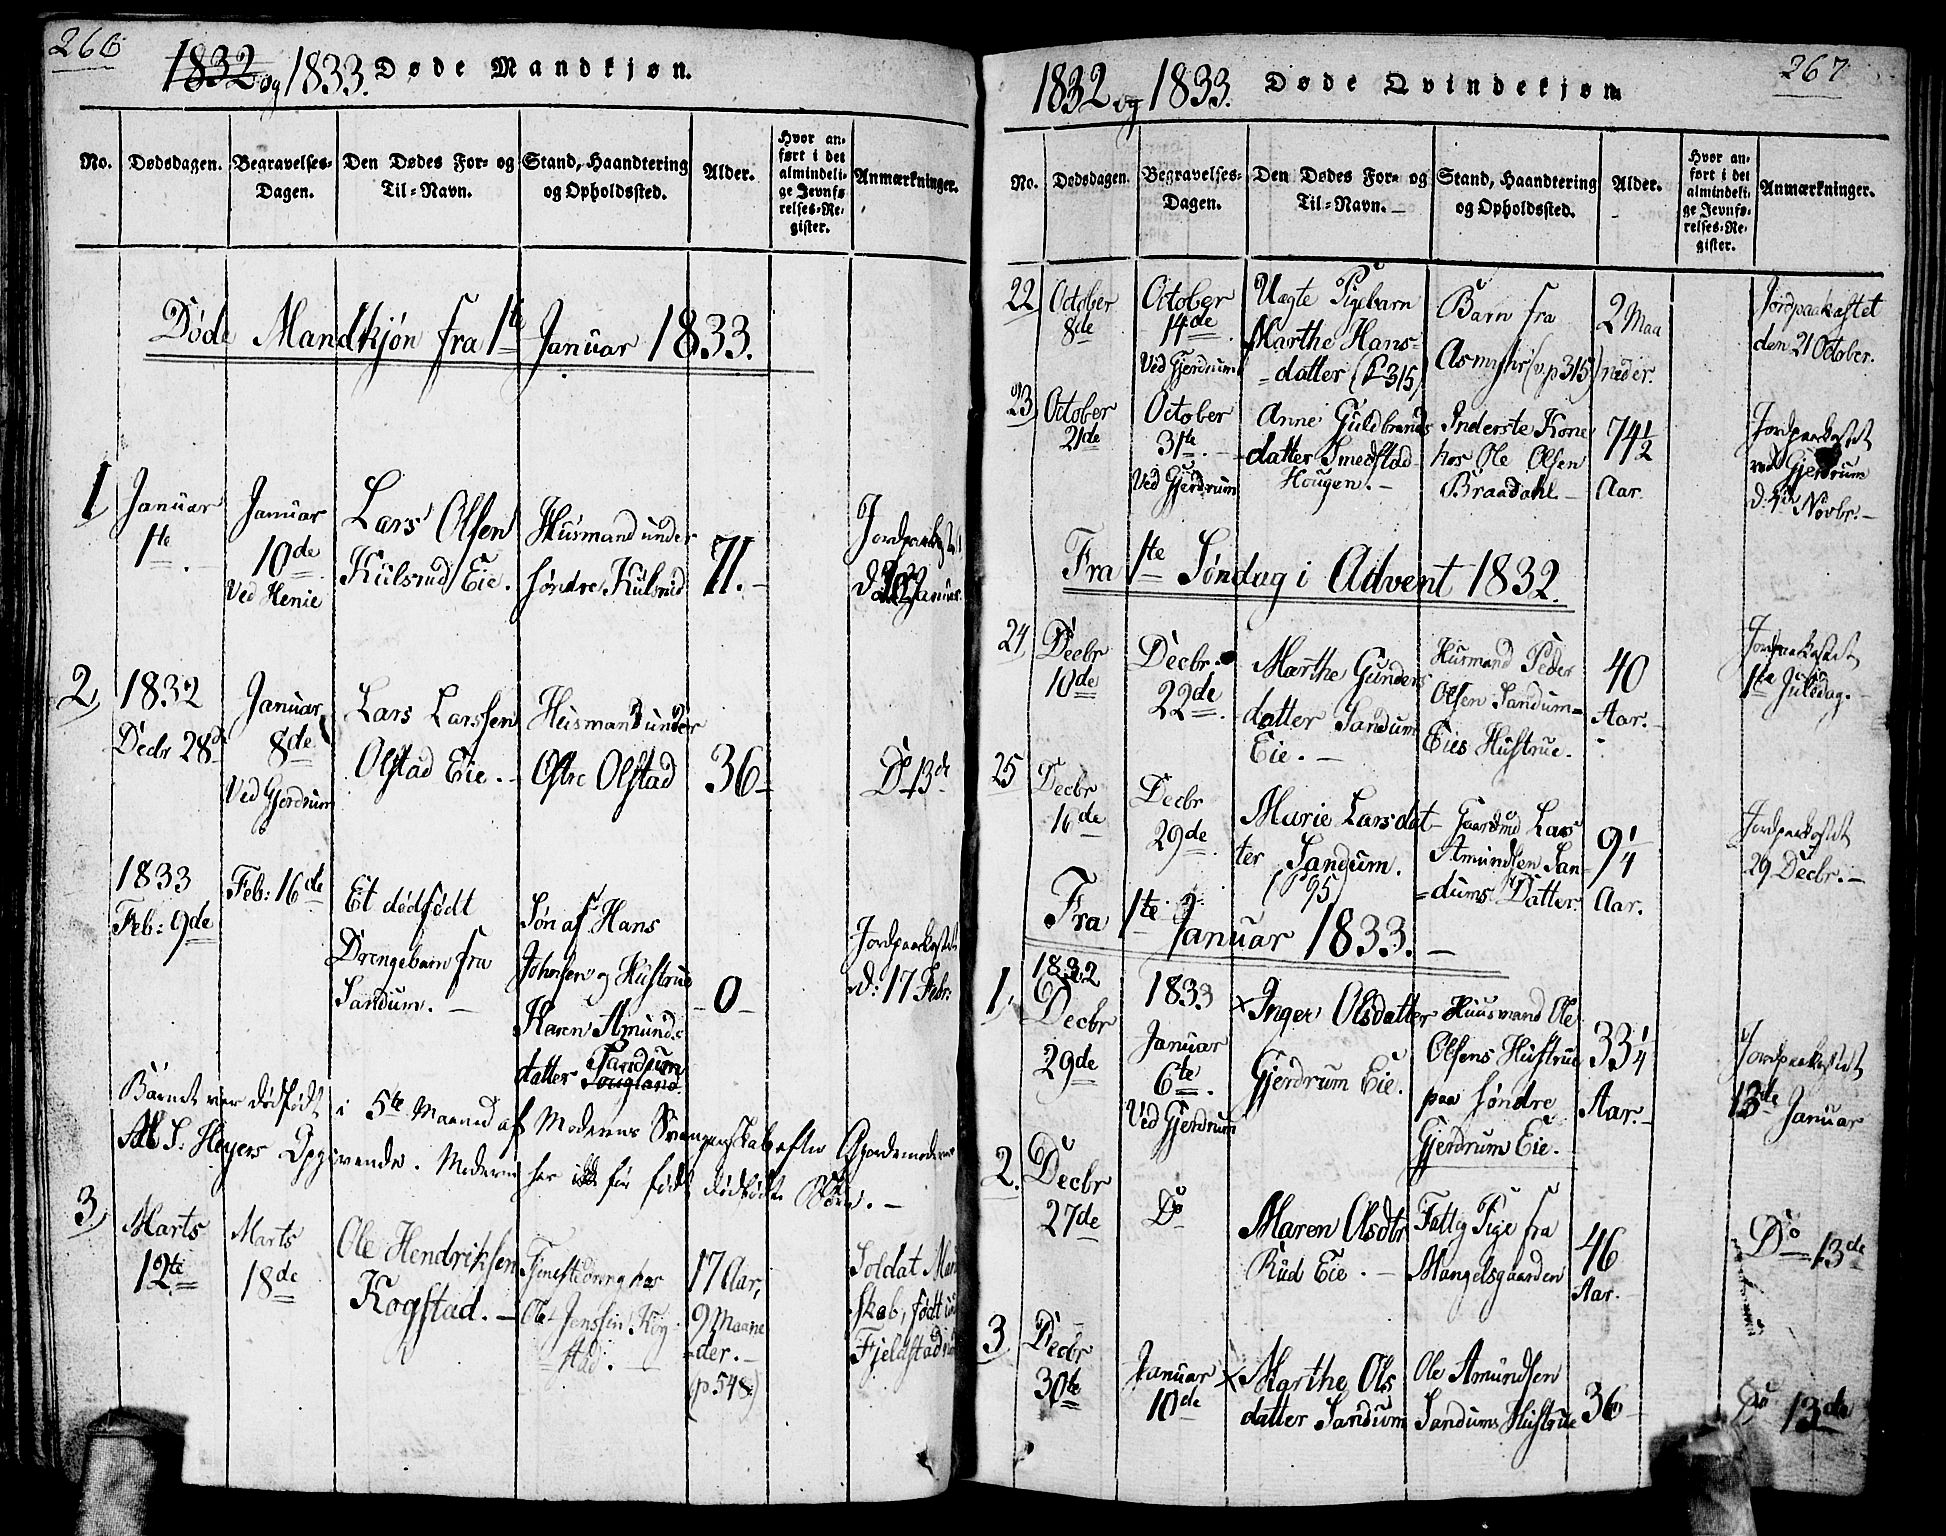 266
1832 og 1833. Døde Mandkjøn.
No. Dødsdagen. Begravelses-Dagen. Den Dødes For- og Til-Navn. Stand, Haandtering og Opholdssted. Alder. Hvor anført i det almindelige Jevnførelses-Register. Anmærkninger.
Døde Mandkjøn fra 1te Januar 1833.
1, Januar 1te.
Januar 10de Ved Henie
Lars Olsen
Kulsrud Eie.
Husmand under
søndre Kulsrud
71.
Jordpaakastet
Januar.
2, 1832
Decbr 28de
Januar 8de
Ved Gjerdrum
Lars Larssen
Olstad Eie.
Husmand under
Østre Olstad
36
Do 13de
1833
Feb: 9de
Feb: 16de
Et dødfødt
Drengebarn fra
Sandum.
Søn af Hans
Johnsen og Hustrue
Karen Amunds
datter Sandum
0
Jordpaakastet
d: 17 Febr:
Barnet var dødfødt i 5te Maaned af Moderens Svangerskab efter Gjordemoder
S: Heyers Opgivende. Moderen har før født dødfødte Børn.
3, Marts
12te
Marts
18de
Ole Hendriksen
Kogstad.
Tjenestedreng hos
Ole Jenssen Kogstad.
17 Aar,
9 Maaneder.
(p 548)
Soldat
skab, født
Fjeldstad
267
1832 og 1833. Døde Qvindekjøn
No. Dødsdagen. Begravelses-Dagen. Den Dødes For- og Til-Navn. Stand, Haandtering og Opholdssted. Alder. Hvor anført i det almindelige Jevnførelses-Register. Anmærkninger.
22, October
8de
October
14de
Ved Gjerdrum
Uægte Pigebarn
Marthe Hans-
datter (P 315)
Barn fra
Asmyhr (v. p 315)
2 Maaneder.
Jordpaakastet
den 21 October.
23, October
21de
October
31te.
Ved Gjerdrum
Anne Guldbrands
datter Smedstad
Hougen.
Inderste Kone
hos Ole Olsen
Braadahl
74 1/2
Aar.
Jordpaakastet
ved Gjerdrum
Novbr.
Fra 1te Søndag i Advent 1832.
24, Decbr
10de
Decbr.
22de.
Marthe Gunders
datter Sandum
Eie.
Husmand Peder
Olsen Sandum-
Eies Hustrue.
40
Aar.
Jordpaakastet
1te Juledag.
25 Decbr
16de
Decbr
29de
Marie Larsdat-
ter Sandum.
(P 95)
Gaardmd Lars
Amundsen San-
dums Datter.
9 1/4
Aar.
Jordpaakastet
29 Decbr.
Fra 1te Januar 1833.
1, 1832
Decbr
29de
1833
Januar
6te.
Ved Gjerdrum
x Inger Olsdatter
Gjerdrum Eie.
Huusmand Ole
Olsens Hustrue
paa søndre
Gjerdrum Eie.
33 1/4
Aar.
Jordpaakastet
13de Januar
2. Decbr
27de
Do
Maren Olsdtr
Rud Eie.
Fattig Pige fra
Mangelsgaarden
46
Aar.
Do 13de
3. Decbr
30te
Januar
10de
x Marthe Ols
datter Sandum
Ole Amundsen
Sandums Hustrue
36
Do 13de